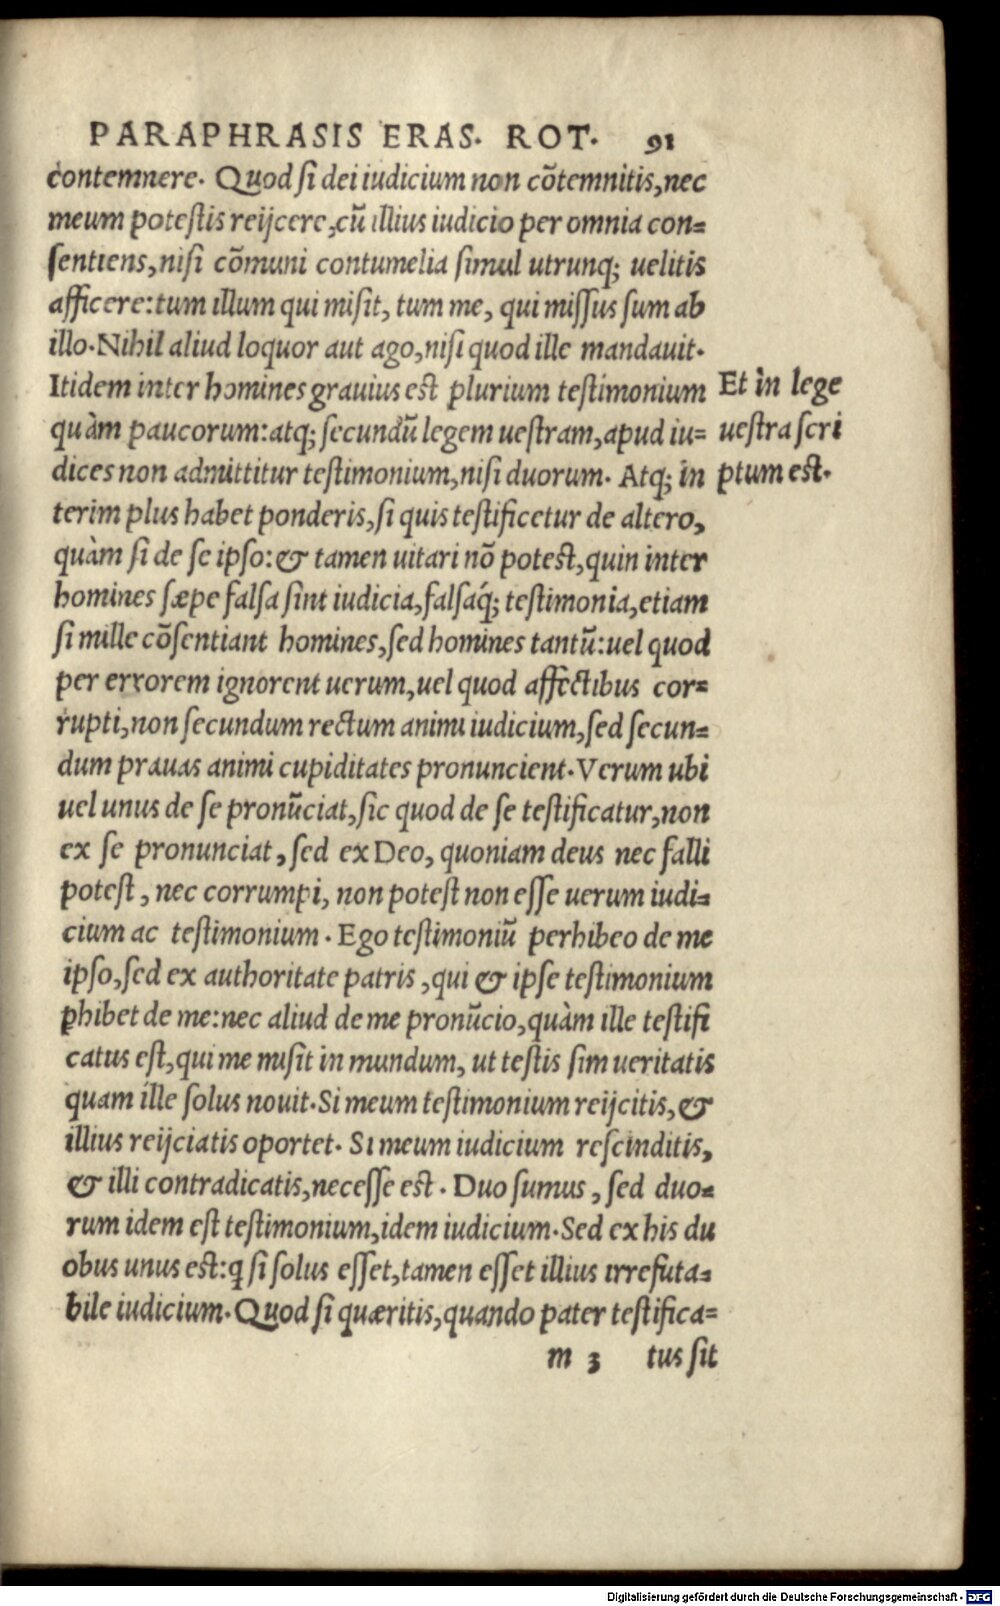 PARAPHRASIS ERAS. ROT. 91
contemnere. Quod ſi dei iudicium non cõtemnitis,nec
meum poteſtis reijcere,cũ illius iudicio per omnia con=
ſentiens,niſi cõmuni contumelia ſimul utrunq; uelitis
afficere:tum illum qui miſit, tum me, qui miſſus ſum ab
illo.Nihil aliud loquor aut ago,niſi quod ille mandauit.
Itidem inter homines grauius est plurium teſtimonium
quàm paucorum:atq; ſecundũ legem ueſtram,apud iu=
dices non admittitur teſtimonium,niſi duorum. Atq; in
Et in lege
ueſtra ſcri
ptum est.
terim plus habet ponderis,ſi quis teſtificetur de altero,
quàm ſi de ſe ipſo:& tamen uitari nõ potest,quin inter
homines ſæpe falſa ſint iudicia,falſaq́; teſtimonia,etiam
ſi mille cõſentiant homines,ſed homines tantũ:uel quod
per errorem ignorent uerum,uel quod affectibus cor=
rupti,non ſecundum rectum animi iudicium,ſed ſecun=
dum prauas animi cupiditates pronuncient.Verum ubi
uel unus de ſe pronũciat,ſic quod de ſe teſtificatur,non
ex ſe pronunciat, ſed ex Deo, quoniam deus nec falli
poteſt, nec corrumpi, non poteſt non eſſe uerum iudi=
cium ac teſtimonium. Ego teſtimoniũ perhibeo de me
ipſo,ſed ex authoritate patris, qui & ipſe teſtimonium
ꝑhibet de me:nec aliud de me pronũcio,quàm ille teſtifi
catus eſt,qui me miſit in mundum, ut teſtis ſim ueritatis
quam ille ſolus nouit.Si meum teſtimonium reijcitis,&
illius reijciatis oportet. Si meum iudicium reſcinditis,
& illi contradicatis,neceſſe est. Duo ſumus, ſed duo=
rum idem eſt teſtimonium,idem iudicium.Sed ex his du
obus unus est:q ſi ſolus eſſet,tamen eſſet illius irrefuta=
bile iudicium.Quod ſi quæritis,quando pater teſtifica=
m 3 tus ſit
Digitalisierung gefördert durch die Deutsche Forschungsgemeinschaft - DFG